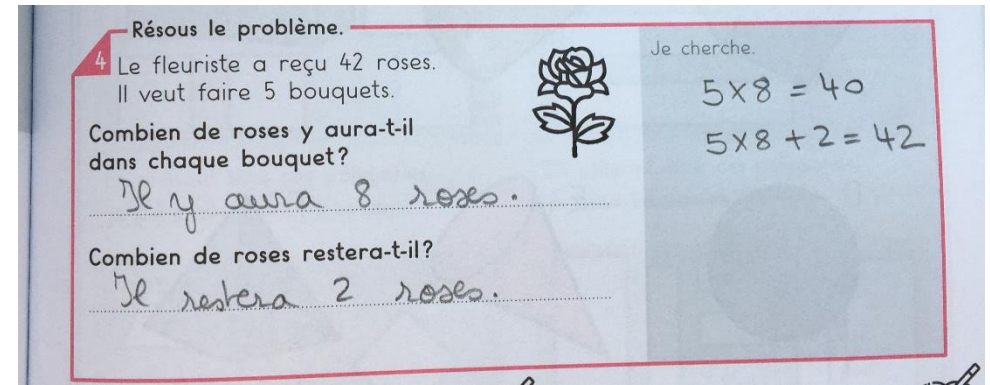 Résous le problème.
4
Le fleuriste a reçu 42 roses.
Il veut faire 5 bouquets.
Combien de roses y aura-t-il
dans chaque bouquet ?
Il y aura 8 roses.
Combien de roses restera-t-il ?
Il restera 2 roses.
Je cherche.
5 x 8 = 40
5 x 8 + 2 = 42